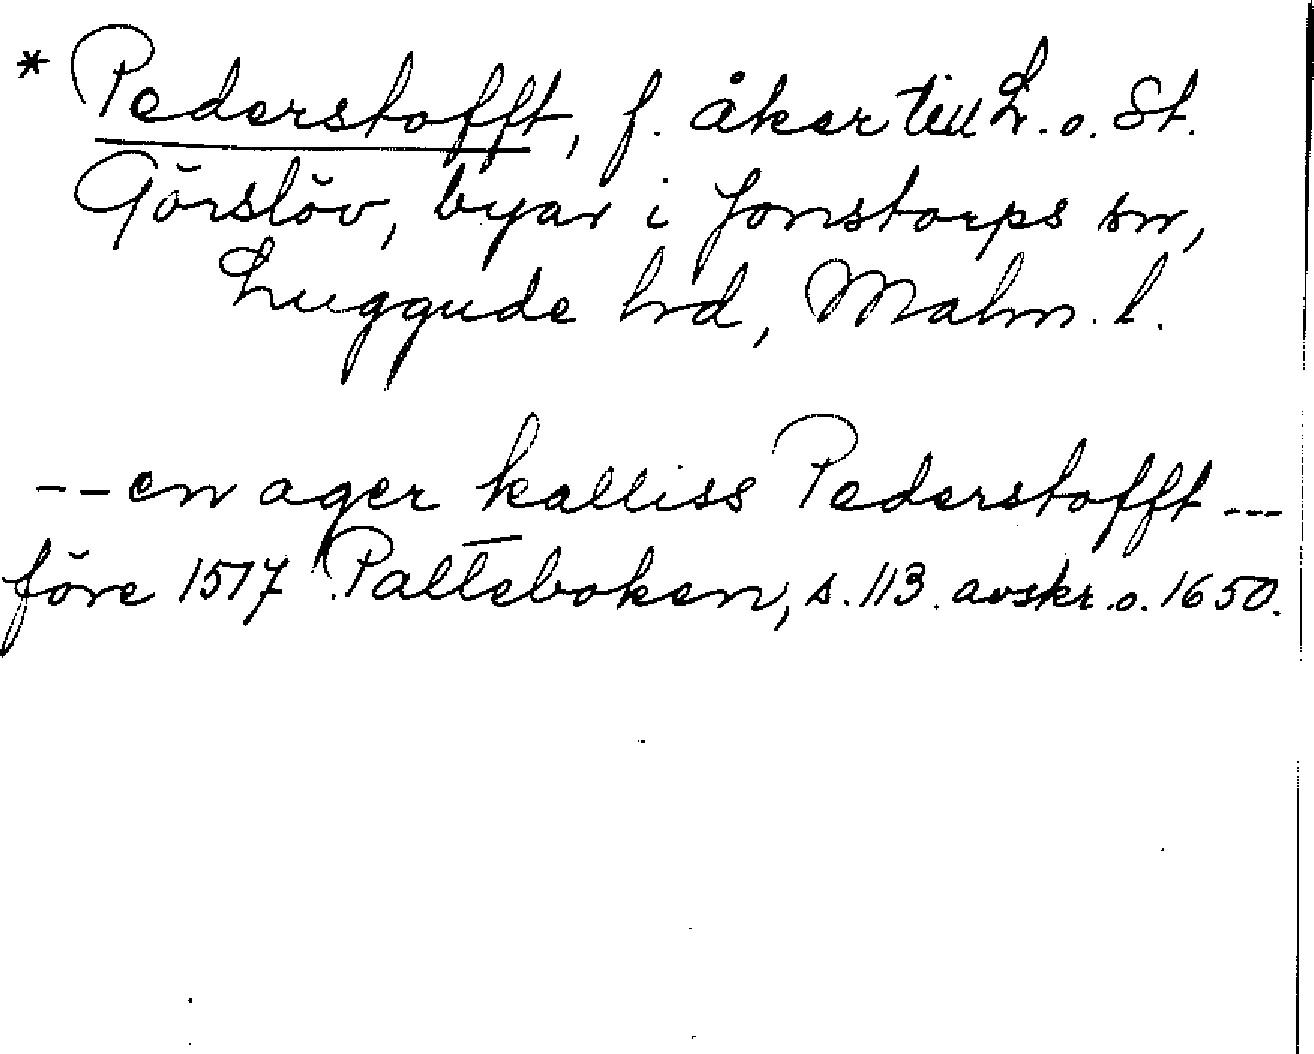 * Pederstofft, f. åker till L. o. St.
Görslöv, byar i Jonstorps sn,
Luggude hd, Malm. l.
-- en ager kalliss Pederstofft ---
före 1517 Palteboken, s. 113. avskr. o. 1650.